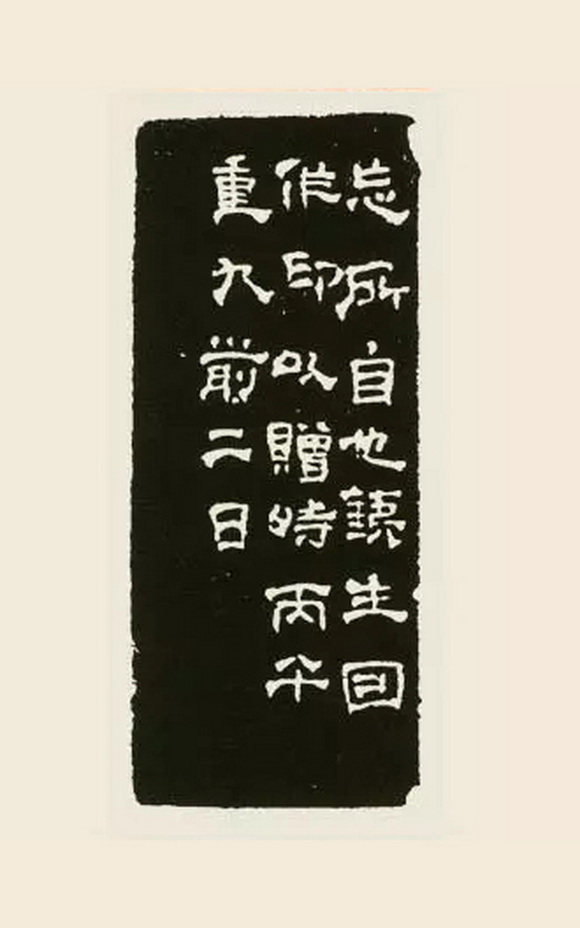 忘所自也銕生囙
作印以贈時丙午
重九前二日